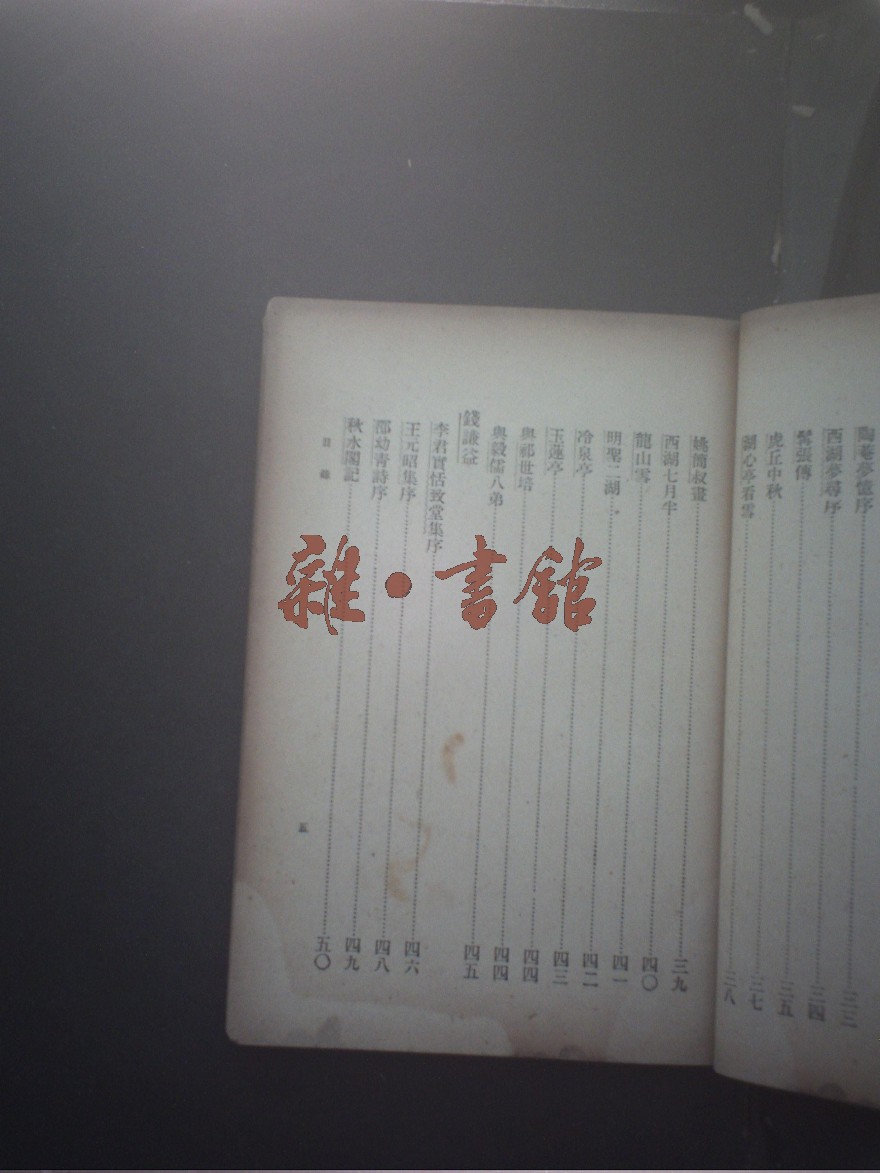 陶菴夢憶序……三三
西湖夢尋序……三四
髯張傳……三五
虎丘中秋……三七
湖心亭看雪……三八
姚簡叔畫……三九
西湖七月半……四〇
龍山雪……四一
明聖二湖……四二
冷泉亭……四三
玉蓮亭……四四
與祁世培……四四
與毅儒八弟……四五
錢謙益
李君實恬致堂集序……四六
王元昭集序……四八
邵幼青詩序……四九
秋水閣記……五〇
目錄
五
雜·書館